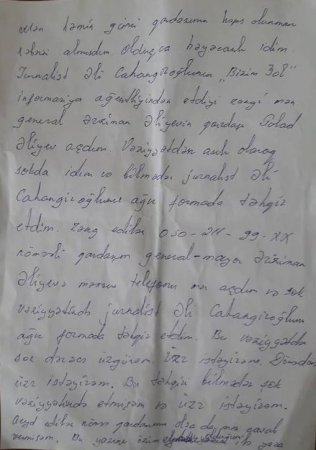 Mən həmin günü qardaşımın həbs olunması
xəbəri almışdım. Olduqca həyəcanlı idim.
Jurnalist Əli Cahangiroğlunun "Bizim Yol"
informasiya agentliyindən etdiyi zəngi mən
general Ərziman Əliyevin qardaşı Polad
Əliyev açdım. Vəziyyətdən asılı olaraq
şokda idim və bilmədən jurnalist Əli
Cahangiroğlunu ağır formada təhqir
etdim. Zəng edilən 050-211-99-XX
nömrəli qardaşım general-mayor Ərziman
Əliyevə məxsus telefonu mən açdım və şok
vəziyyətində jurnalist Əli Cahangiroğlunu
ağır formada təhqir etdim. Bu vəziyyətdə
son dərəcə üzgünəm. Üzr istəyirəm. Dönədən
üzr istəyirəm. Bu təhqiri bilmədən şok
vəziyyətində etmişəm və üzr istəyirəm.
Qeyd edilən nömrə qardaşıma
Bu